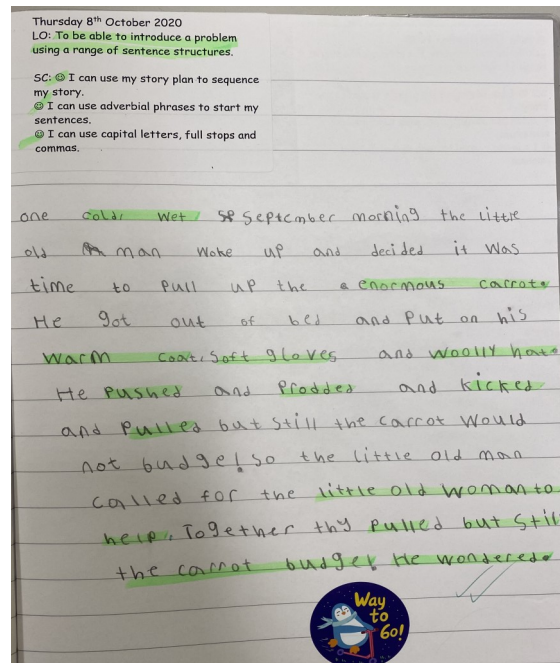 Thursday 8th October 2020
LO: To be able to introduce a problem
using a range of sentence structures.
SC: ☺ I can use my story plan to sequence
my story.
☺ I can use adverbial phrases to start my
sentences.
☺ I can use capital letters, full stops and
commas.
one cold, wet, September morning the little
old man woke up and decided it was
time to pull up the enormous carrot.
He got out of bed and put on his
warm coat, soft gloves and woolly hat.
He pushed and prodded and kicked
and pulled but still the carrot would
not budge! so the little old man
called for the little old woman to
help. Together thy pulled but still
the carrot budge! He wondered.
Way
to
Go!